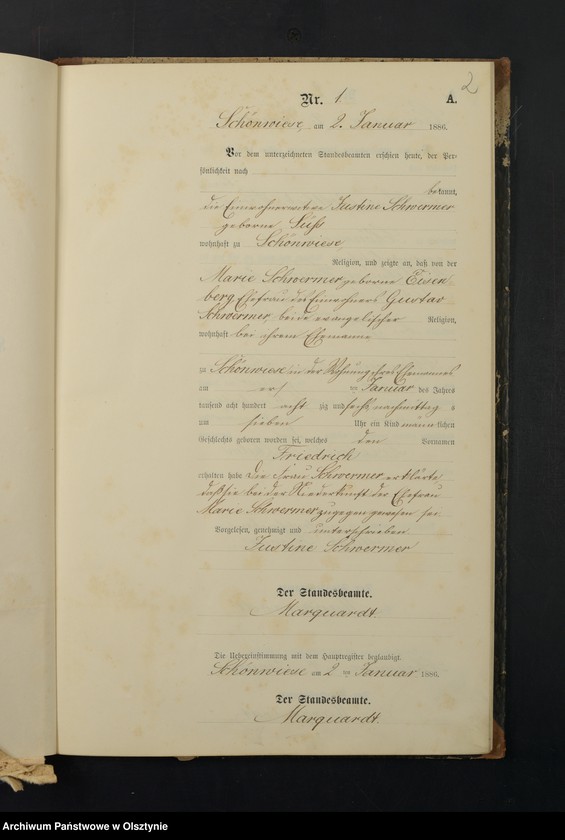 2
Nr. 1 A.
Schönwiese, am 2. Januar 1886.
Vor dem unterzeichneten Standesbeamten erschien heute, der Per-
sönlichkeit nach
bekannt,
die Einwohnerwitwe Justine Schwermer
geborne Süß
wohnhaft zu Schönwiese,
Religion, und zeigte an, daß von der
Marie Schwermer geborne Eisen-
berg, Ehefrau des Einwohners Gustav
Schwermer, beide evangelischer Religion,
wohnhaft bei ihrem Ehemanne
zu Schönwiese in der Wohnung ihres Ehemannes
am ersten Januar des Jahres
tausend acht hundert achtzig und sechs, nachmittag s
um sieben Uhr ein Kind männlichen
Geschlechts geboren worden sei, welches den Vornamen
Friedrich
erhalten habe. Die Frau Schwermer erklärte,
daß sie bei der Niederkunft der Ehefrau
Marie Schwermer zugegen gewesen sei.
Vorgelesen, genehmigt und unterschrieben.
Justine Schwermer
Der Standesbeamte.
Marquardt.
Die Uebereinstimmung mit dem Hauptregister beglaubigt.
Schönwiese am 2ten Januar 1886.
Der Standesbeamte.
Marquardt.
Archiwum Państwowe w Olsztynie